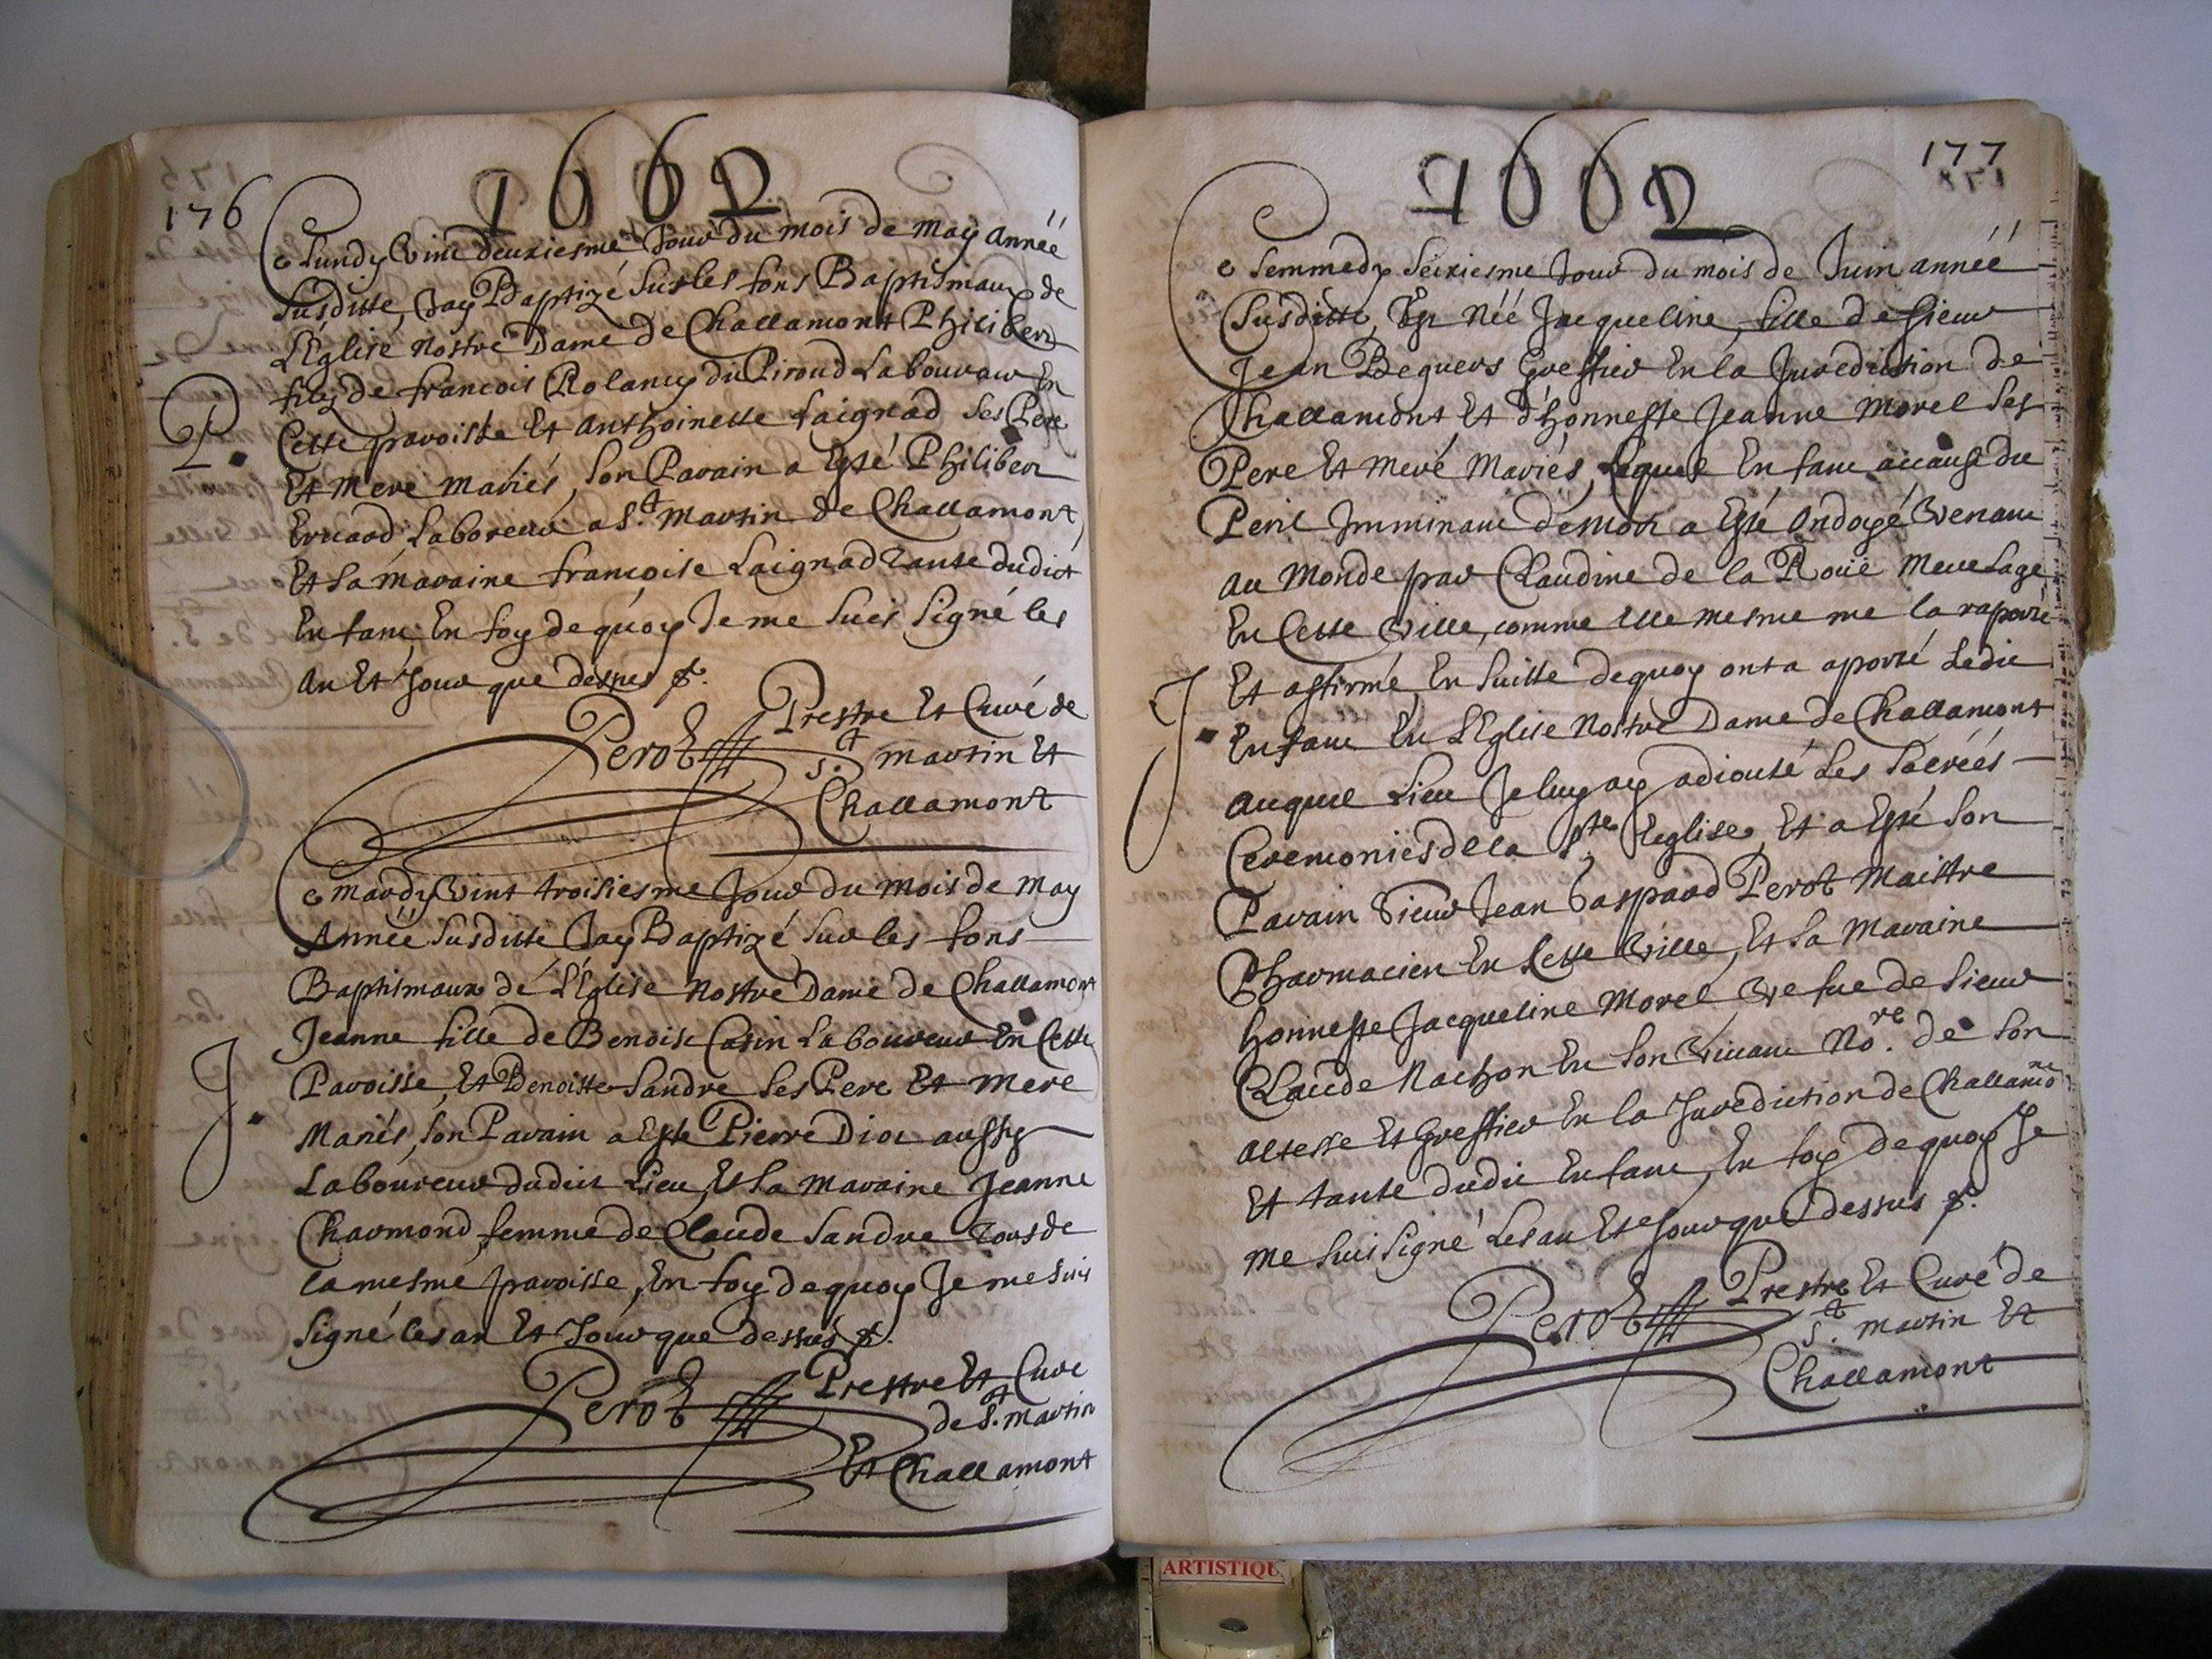 176
1662
Ce Lundy Vint deuxiesme Jour du mois de May Année
Susditte, Jay Baptizé Sur les fons Baptismaux de
L'Eglise Nostre Dame de Challamont Philiber
filz de francois du Piroud Laboureur En
Cette paroisse Et Anthoinette Laignad Ses Pere
P.
Et Mere Mariés, Son Parain a Esté Philiber
Laboreur a St. Martin de Challamont,
Et Sa Maraine francoise Laignad Tante dudict
Enfant, En foy de quoy Je me Suis Signé les
An Et Jour que dessus &.
Perot Prestre Et Curé de
St. Martin Et
Challamont
Ce Mardy Vint troisiesme Jour du mois de May
Année Susditte Jay Baptizé Sur les fons
Baptismaux de L'Eglise Nostre Dame de Challamont
Jeanne fille de Benoist Laboureur En Cette
J.
Paroisse, Et Benoitte Sandre Ses Pere Et Mere
Mariés, Son Parain a Esté Pierre aussy
Laboureur dudict Lieu, Et Sa Maraine Jeanne
Charmond, femme de Claude Sandre Tous de
la mesme paroisse, En foy de quoy Je me Suis
Signé les an Et Jour que dessus &.
Perot Prestre Et Curé
de St. Martin
Et Challamont
177
1662
Ce Semmedy Seixiesme Jour du mois de Juin année
Susditte, Née Jacqueline, fille de Sieur
Jean Beguers Greffier En la Jurediction de
Challamont Et d'honneste Jeanne Morel Ses
Pere Et Mere Mariés, Lequel Enfant a cause du
Peril Imminant de Mort a Esté Ondoyé Venant
Au Monde par Claudine de la Rouë Mere Sage
En Cette Ville, comme Elle mesme me la raporté
Et affirmé, En Suitte de quoy ont a aporté Ledit
J.
Enfant En L'Eglise Nostre Dame de Challamont
Auquel Lieu Je luy ay adiouté Les Sacrées
Ceremonies de la Ste. Eeglise, Et a Esté Son
Parain Sieur Jean Gaspard Perot Maistre
Pharmacien En Cette Ville, Et Sa Maraine
honneste Jacqueline Morel Vefue de Sieur
Claude Nachon En Son Viuant Nore. de Son
Altesse Et Greffier En la Juridiction de Challamont
Et tante dudit Enfant, En foy de quoy Je
me Suis Signé Les an Et Jour que dessus &.
Perot Prestre Et Curé de
St. Martin Et
Challamont
ARTISTIQU